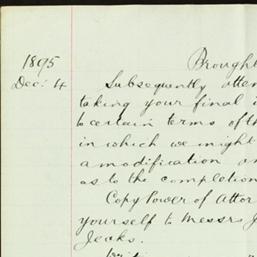 Brought
1895
Dec: 4 Subsequently atten
taking your final i
to certain terms of th
in which we might
a modification an
as to the completion
Copy Power of Attor
yourself to Messrs J
Jecks.